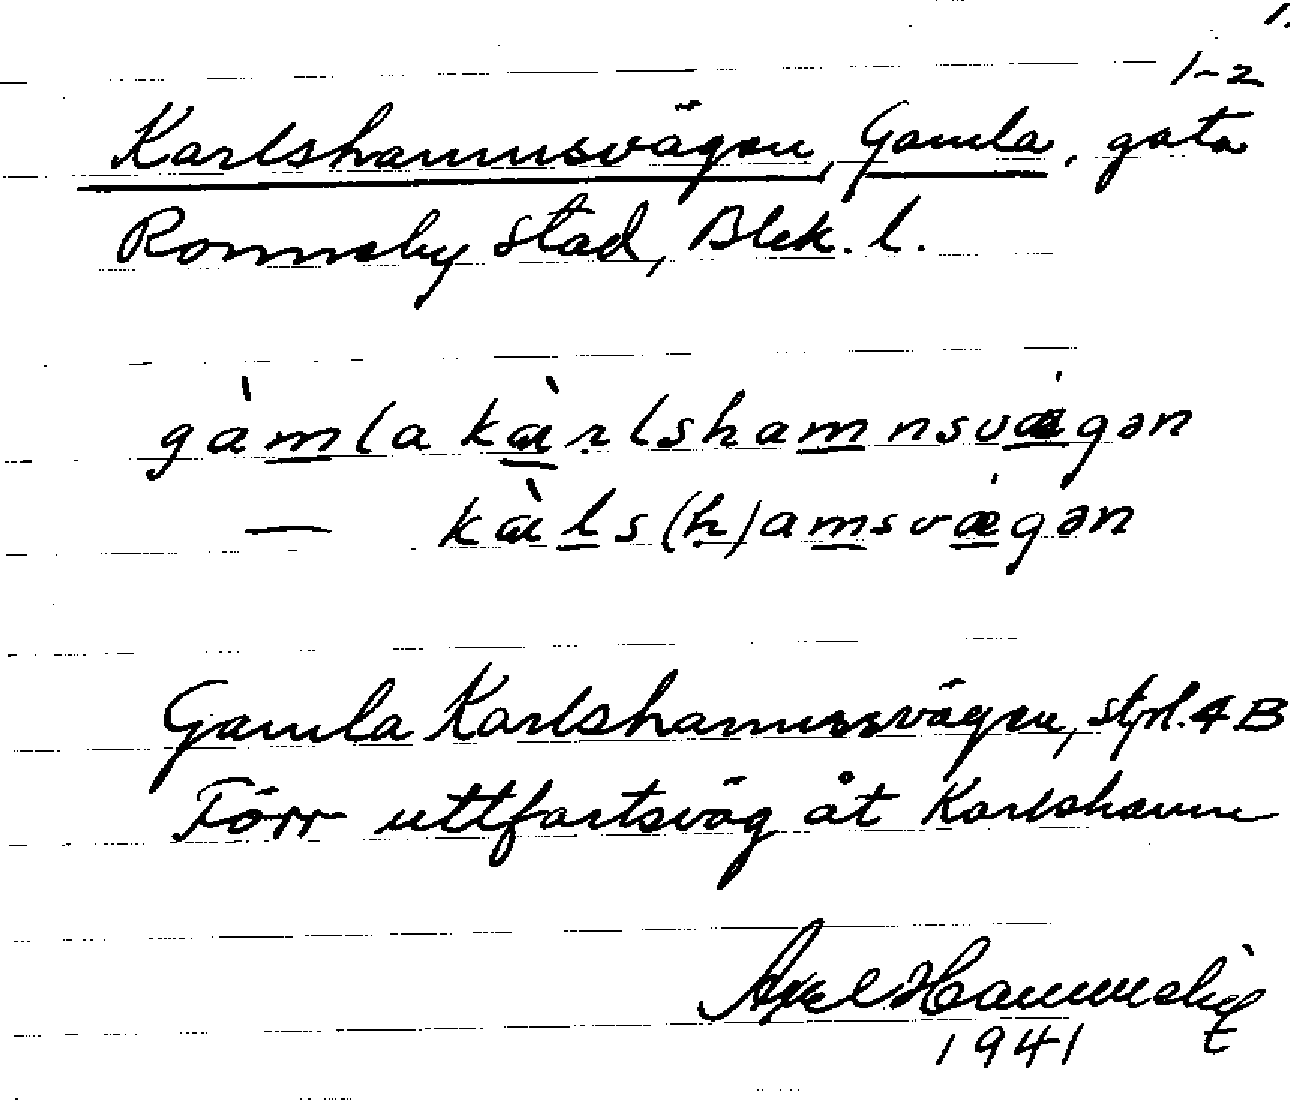 1.
1-2
Karlshamnsvägen, Gamla, gata
Ronneby stad, Blek. l.
gàmla kàrlshamnsvægən
— kàls(h)amsvægən
Gamla Karlshamnsvägen, stpl. 4 B
Förr uttfartsväg åt Karlshamn
Axel
1941